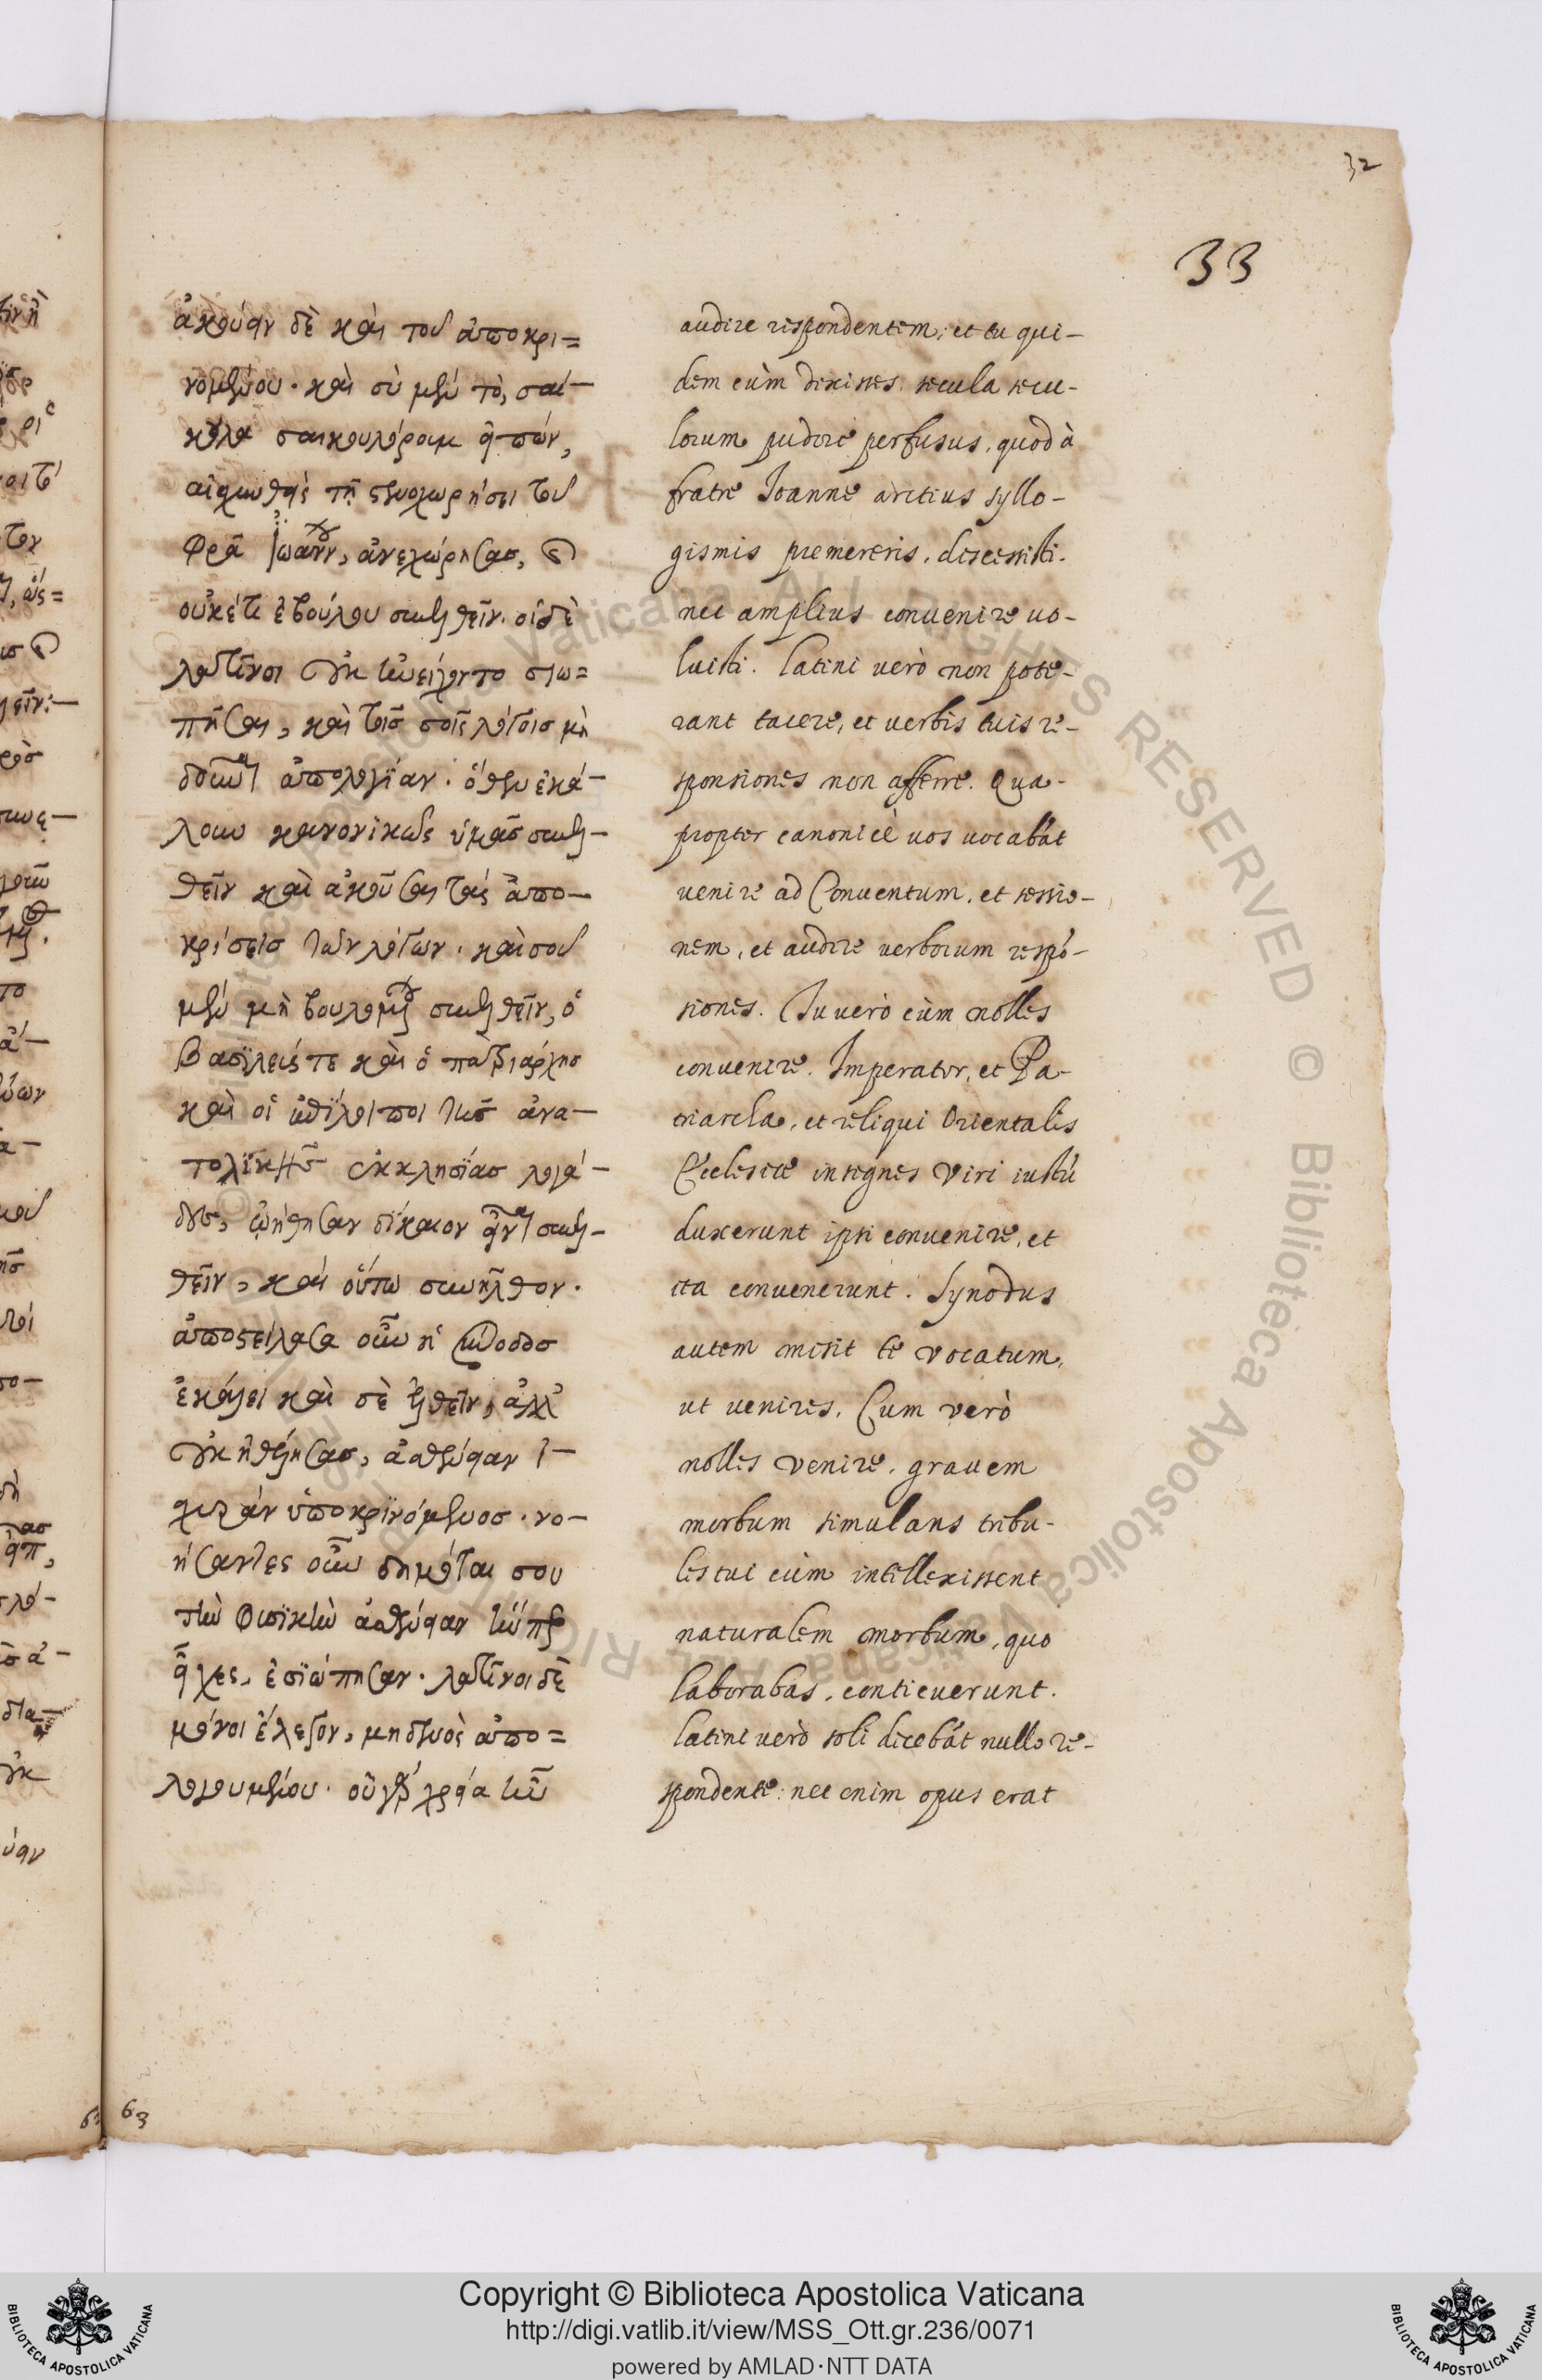 32
33
ἀκούειν δὲ καὶ τοῦ ἀποκρι=
νομένου. καὶ σὺ μὲν τὸ, σαί-
κουλα σαικουλόρουμ εἰπών,
αἰσχυνθεὶς τῇ στενοχωρήσει τοῦ
Φρᾶ Ἰωάννου, ἀνεχώρησας, καὶ
οὐκέτι ἐβούλου συνελθεῖν. οἱ δὲ
λατῖνοι οὐκ ἠνείχοντο σιω=
πῆσαι, καὶ τοῖς σοῖς λόγοις μὴ
δοῦναι ἀπολογίαν. ὅθεν ἐκά-
λουν κανονικῶς ὑμᾶς συνελ-
θεῖν καὶ ἀκοῦσαι τὰς ἀπο-
κρίσεις τῶν λόγων. καὶ σοῦ
μὲν μὴ βουλομένου συνελθεῖν, ὁ
βασϊλεύς τε καὶ ὁ πατριάρχης
καὶ οἱ ἐπίλοιποι τῆς ἀνα-
τολικῆς ἐκκλησίας λογά-
δες, ᾠήθησαν δίκαιον εἶναι συνελ-
θεῖν, καὶ οὕτω συνῆλθον.
ἀποστείλασα οὖν ἡ σύνοδος
ἐκάλει καὶ σὲ ἐλθεῖν, ἀλλ'
οὐκ ἠθέλησας, ἀσθένειαν ἰ-
σχυρὰν ὑποκρϊνόμενος. νο-
ήσαντες οὖν δημόται σου
τὴν φυσϊκὴν ἀσθένειαν ἥνπερ
εἶχες, ἐσϊώπησαν. λατῖνοι δὲ
μόνοι ἔλεγον, μηδενὸς ἀπο=
λογουμένου. οὐ γὰρ χρεία ἦν
audire respondentem; et tu qui-
dem cùm dixisses. secula secu-
lorum pudore perfusus, quod à
fratre Ioanne arctius syllo-
gismis premereris, discessisti.
nec amplius convenire vo-
luisti. Latini verò non pote-
rant tacere, et verbis tuis re-
sponsiones non afferre. Qua-
propter canonicè vos vocabāt
venire ad Conventum, et sessio-
nem, et audire verborum respō-
siones. Tu verò cùm nolles
convenire. Imperator, et Pa-
triarcha, et reliqui Orientalis
Ecclesiæ insignes Viri iustū
duxerunt ipsi convenire, et
ita convenerunt. Synodus
autem misit te vocatum,
ut venires. Cum verò
nolles venire, gravem
morbum simulans tribu-
les tui cùm intellexissent
naturalem morbum, quo
laborabas, conticuerunt.
Latini verò soli dicebāt nullo re-
spondente: nec enim opus erat
63
Copyright © Biblioteca Apostolica Vaticana
http://digi.vatlib.it/view/MSS_Ott.gr.236/0071
powered by AMLAD·NTT DATA